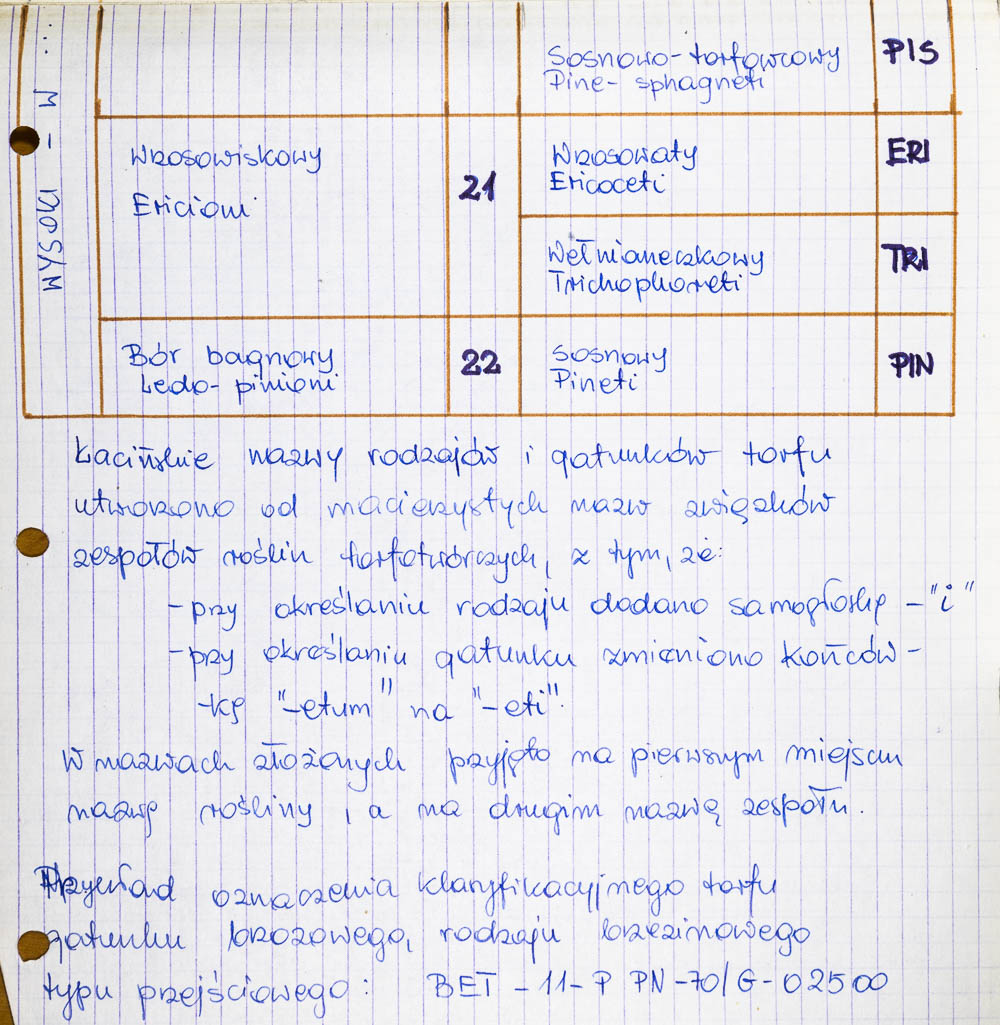 WYSOKI - M ...
Sosnowo-torfowcowy
Pine-sphagneti
PIS
Wrzosowiskowy
Ericioni
21
Wrzosowaty
Ericaceti
ERI
Wełnianeczkowy
Trichophoreti
TRI
Bór bagnowy
Ledo-pinioni
22
Sosnowy
Pineti
PIN
Łacińskie nazwy rodzajów i gatunków torfu
utworzono od macierzystych nazw związków
zespołów roślin torfotwórczych, z tym, że:
-przy określaniu rodzaju dodano samogłoskę -"i"
-przy określaniu gatunku zmieniono końców-
-kę "-etum" na "-eti".
W nazwach złożonych przyjęto na pierwszym miejscu
nazwę rośliny, a na drugim nazwę zespołu.
Przykład oznaczenia klasyfikacyjnego torfu
gatunku brzozowego, rodzaju brzezinowego
typu przejściowego: BET-11-P PN-70/G-02500